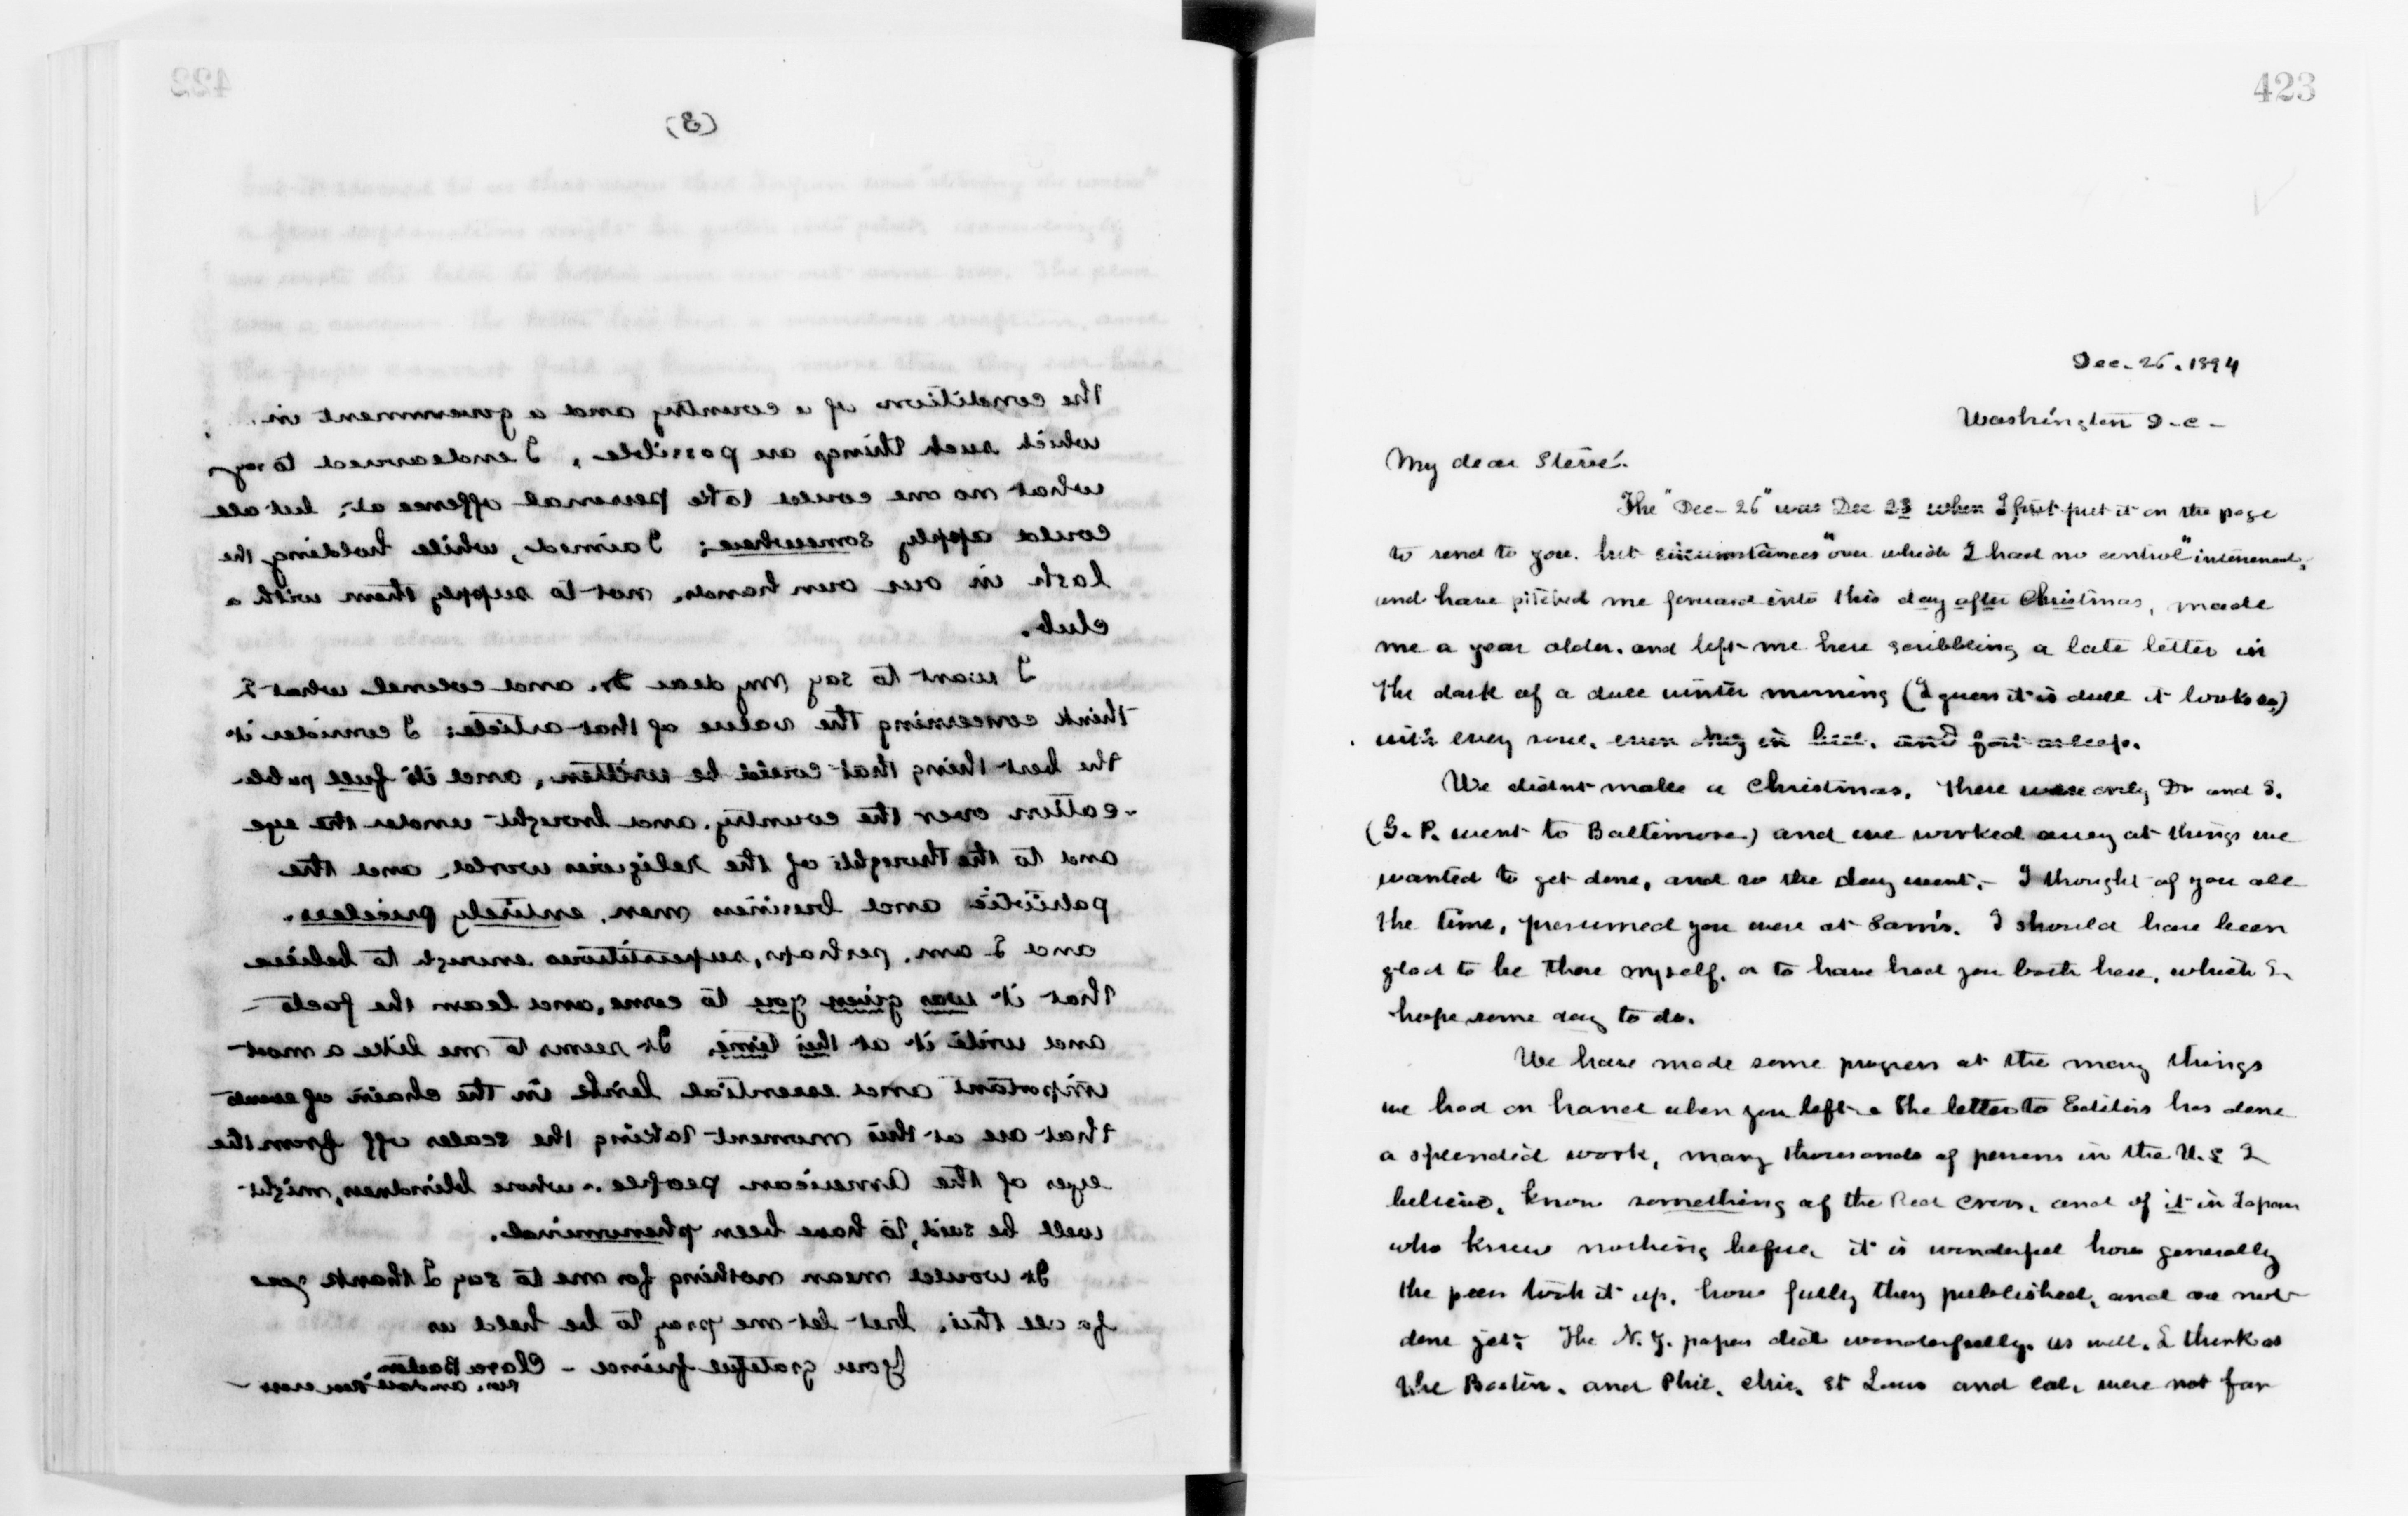 422
(3)
the condition of a country and a government in
which such things are possible, I endeavored to say
what no one could take personal offence at; but all
could apply somewhere; I aimed, while, holding the
lash in our own hands, not to supply them with a
club.
I want to say my dear Dr. and colonel what I
think concerning the value of that article; I consider it
the best thing that could be written, and its full publi-
cation over the country, and brought under the eye
and to the thoughts of the religious world, and the
patriotic and business men, entirely priceless.
and I am, perhaps, superstitious enough to believe
that it was given you to come, and learn the facts
and write it at this time. It seems to me like a most
important and essential link in the chain of events
that are at this moment taking the scales off from the
eyes of the American people. whose blindness, might
well be said, to have been phenominal.
It would mean nothing for me to say I thank you
for all this, but let me pray to be held as
Your grateful friend - Clara Barton
423
Dec. 26. 1894
Washington D-C-
My dear Stevé.
The "Dec- 26" was Dec 23 when I first put it on the page
to send to you. but circumstances "over which I had no control" intervened,
and have pitched me forward into this day after Christmas, made
me a year older. and left me here scribbling a late letter in
the dark of a dull winter morning (I guess it is dull it looks so)
with every soul, even in bed, and fast asleep.
We didnt make a Christmas. There were only Dr and I.
(G. P. went to Baltimore.) and we worked away at things we
wanted to get done, and so the day went. - I thought of you all
the time, presumed you were at Sam's. I should have been
glad to be there myself, or to have had you both here, which I
hope some day to do.
We have made some progress at the many things
we had on hand when you left. The letter to Editors has done
a splendid work, many thousands of persons in the U. S I
believe, know something of the Red Cross, and of it in Japan
who knew nothing before, it is wonderful how generally
the press took it up, how fully they published, and are not
done yet. The N. Y. papers did wonderfully, as well, I think as
the Boston, and Phil, Chic, St Louis and Cal, were not far